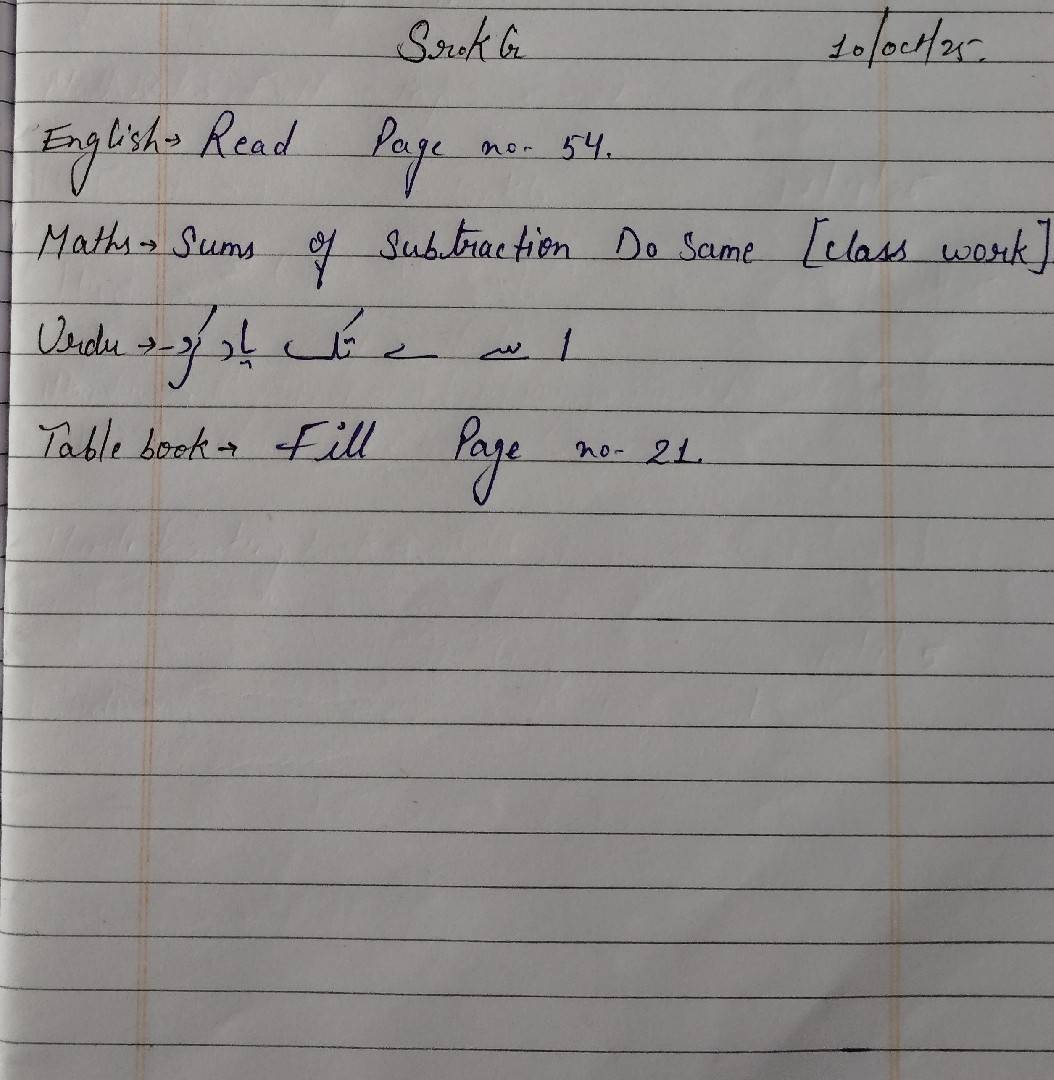 Sr.K G 10/oct/25.
English→ Read Page no- 54.
Maths→ Sums of Subtraction Do Same [class work]
Urdu → ا سے ے تک یاد کرو-
Table book→ Fill Page no- 21.